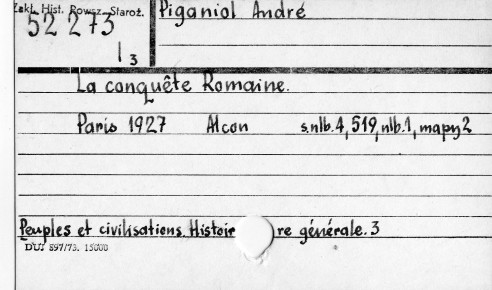 Zakł. Hist. Powsz. Staroż.
52 273
3
Piganiol André
La conquête Romaine.
Paris 1927 Alcan s.nlb.4, 519, nlb.1, mapy 2
Peuples et civilisations. Histoir re générale. 3
DUJ 897/73. 15000